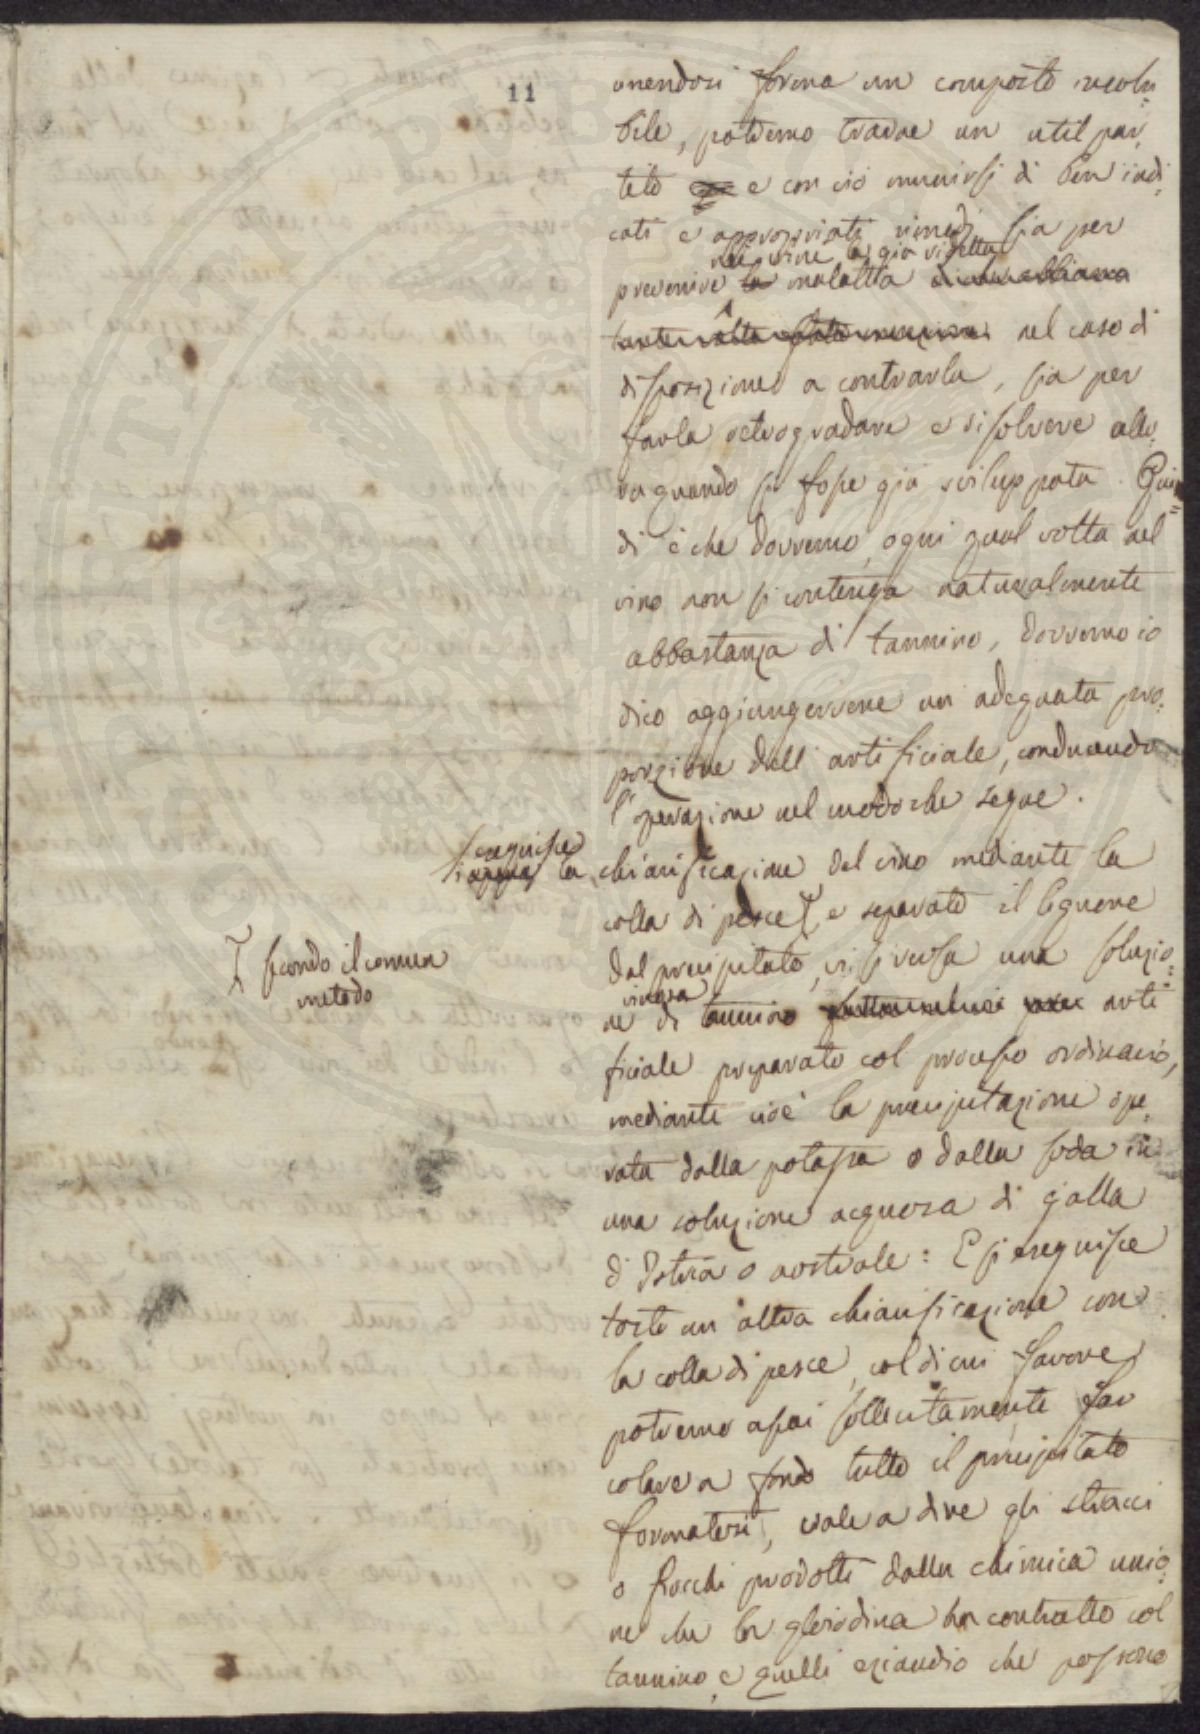 11
unendosi forma un composto insolu-
bile, potremo trarre un util par-
tito e con ciò munirsi di ben indi-
cati e appropriati rimedj sia per
nei vini la già ridetta
prevenire la malattia
tante volte nel caso di
disposizione a contrarla, sia per
farla retrogradare e risolvere allo-
ra quando si fosse già sviluppata. Quin-
di è che dovremo, ogni qual volta nel
vino non si contenga naturalmente
abbastanza di tannino, dovremo io
dico aggiungervene un adeguata pro-
porzione dell' artificiale, conducendo
l'operazione nel modo che segue.
Si eseguisce
la chiarificazione del vino mediante la
colla di pesce, e separato il liquore
secondo il comun
metodo
dal precipitato, vi si versa una soluzio-
vinosa
ne di tannino arti
ficiale preparato col processo ordinario,
mediante cioè la precipitazione ope-
rata dalla potassa o dalla soda in
una soluzione acquosa di galla
d'Istria o nostrale: E si eseguisce
tosto un altra chiarificazione con
la colla di pesce, col di cui favore
potremo assai sollecitamente far
colare a fondo tutto il precipitato
formatosi, vale a dire gli stracci
o fiocchi prodotti dalla chimica unio-
ne che la gliaiadina ha contratto col
tannino, e quelli eziandio che possono